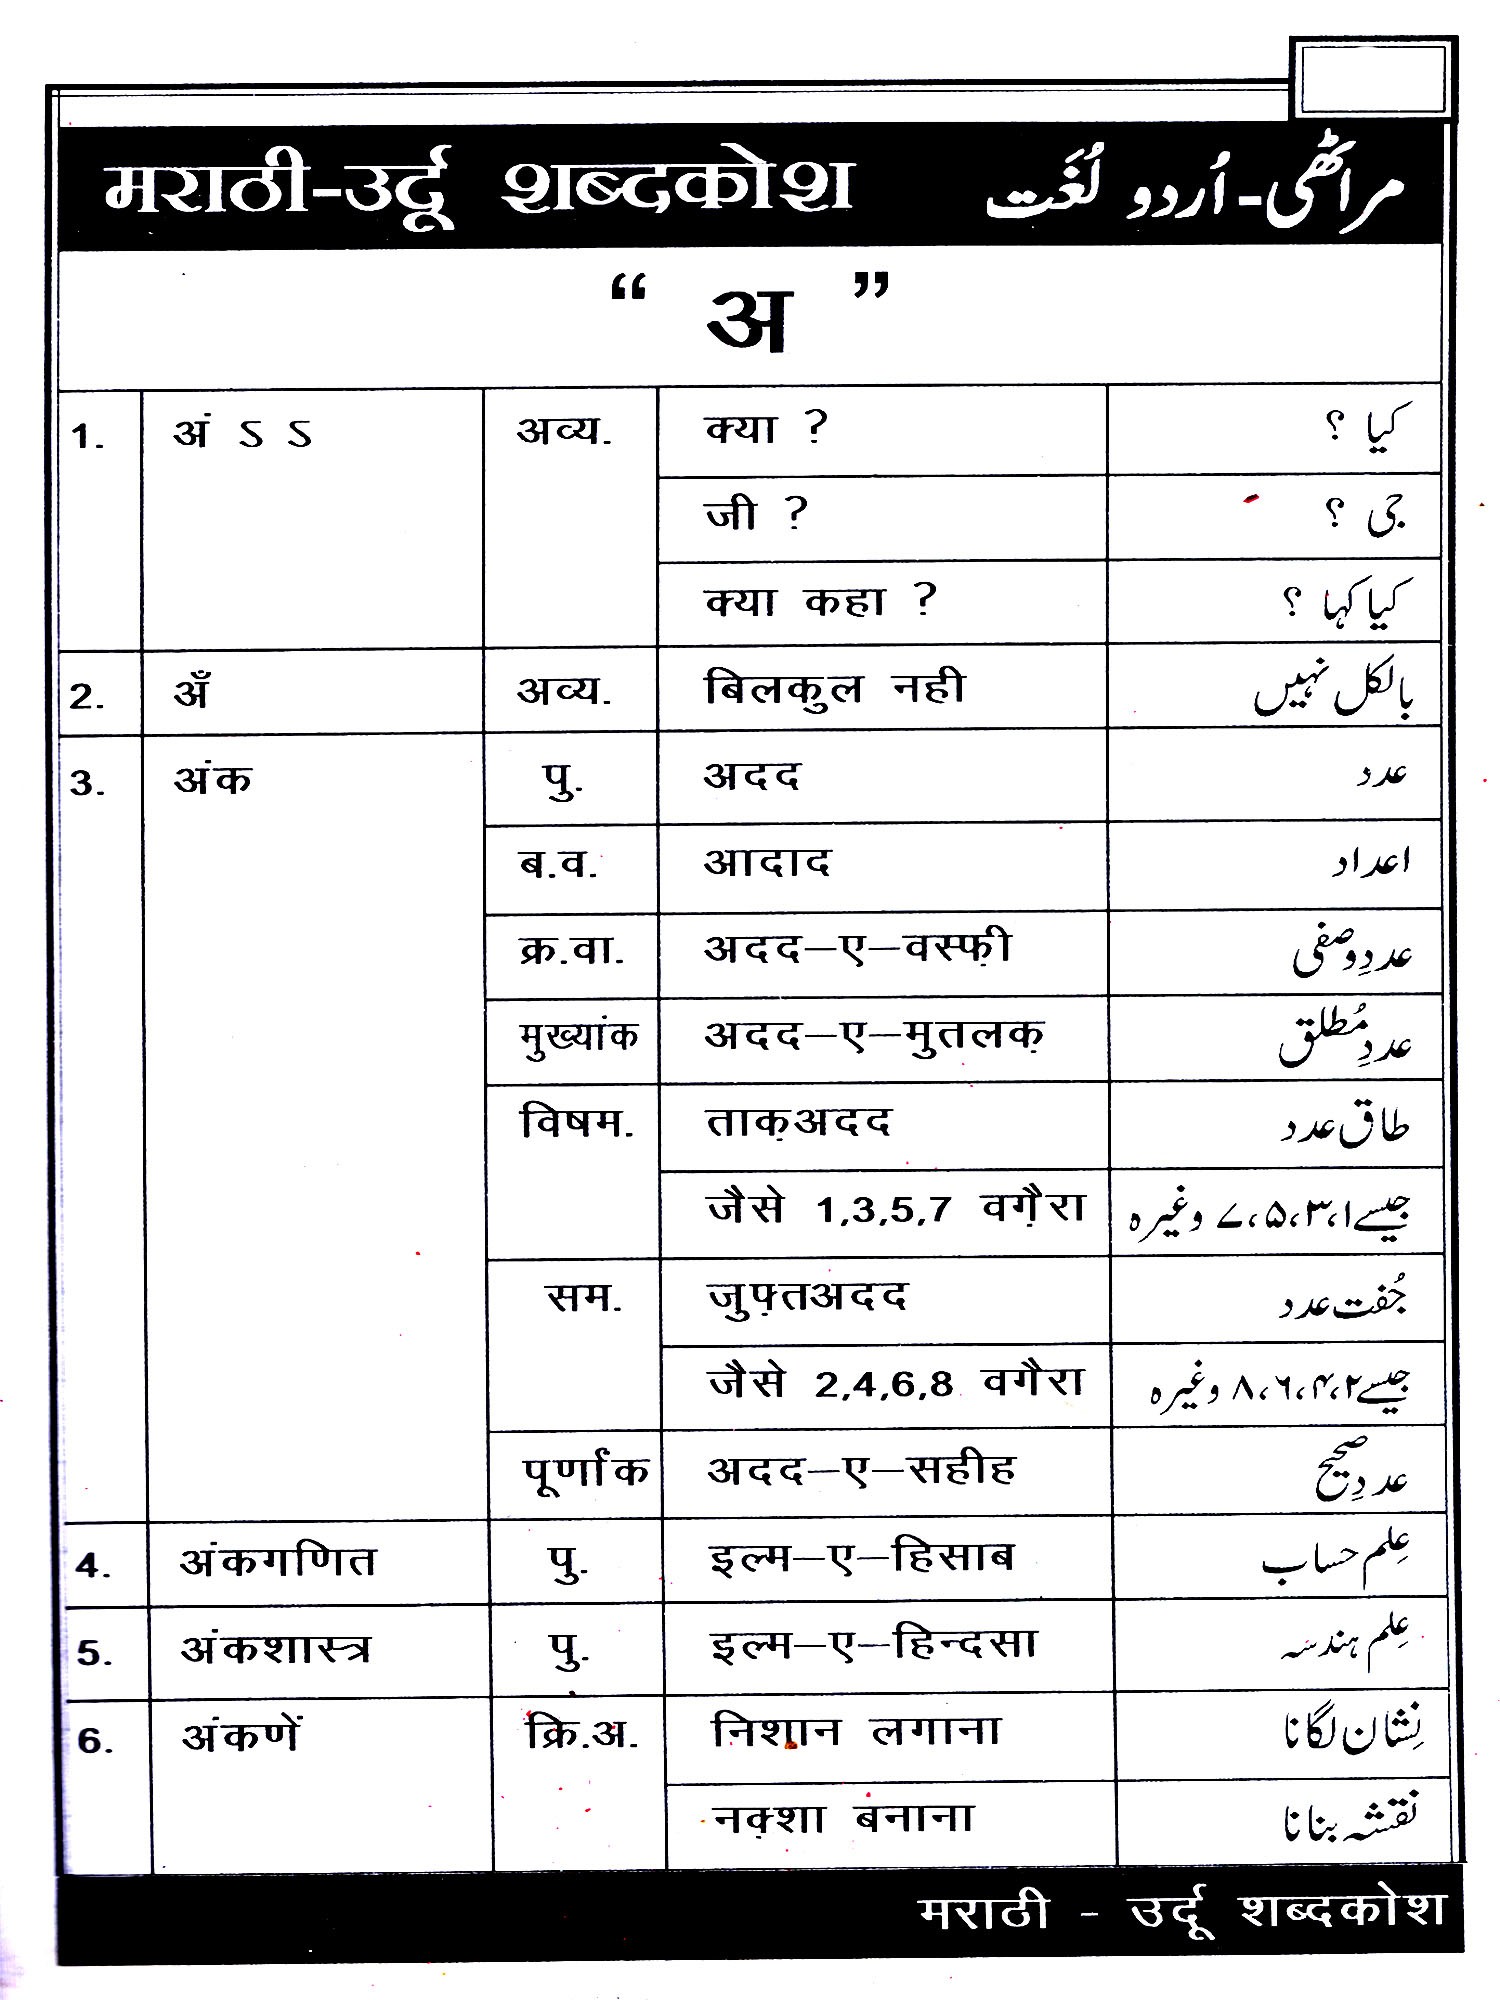 मराठी-उर्दू शब्दकोश مراٹھی - اُردو لُغَت
“ अ ”
1. अं ऽ ऽ अव्य. क्या ? کیا ؟
जी ? جی ؟
क्या कहा ? کیا کہا ؟
2. अँ अव्य. बिलकुल नही بالکل نہیں
3. अंक पु. अदद عدد
ब.व. आदाद اعداد
क्र.वा. अदद–ए–वस्फ़ी عددِ وصفی
मुख्यांक अदद–ए–मुतलक़ عددِ مُطلق
विषम. ताक़अदद طاق عدد
जैसे 1,3,5,7 वग़ैरा جیسے ۱،۳،۵،۷ وغیرہ
सम. जुफ़्तअदद جُفت عدد
जैसे 2,4,6,8 वगैरा جیسے ۲،۴،۶،۸ وغیرہ
पूर्णांक अदद–ए–सहीह عددِ صحیح
4. अंकगणित पु. इल्म–ए–हिसाब عِلم حساب
5. अंकशास्त्र पु. इल्म–ए–हिन्दसा عِلم ہندسہ
6. अंकणें क्रि.अ. निशान लगाना نِشان لگانا
नक़्शा बनाना نقشہ بنانا
मराठी - उर्दू शब्दकोश